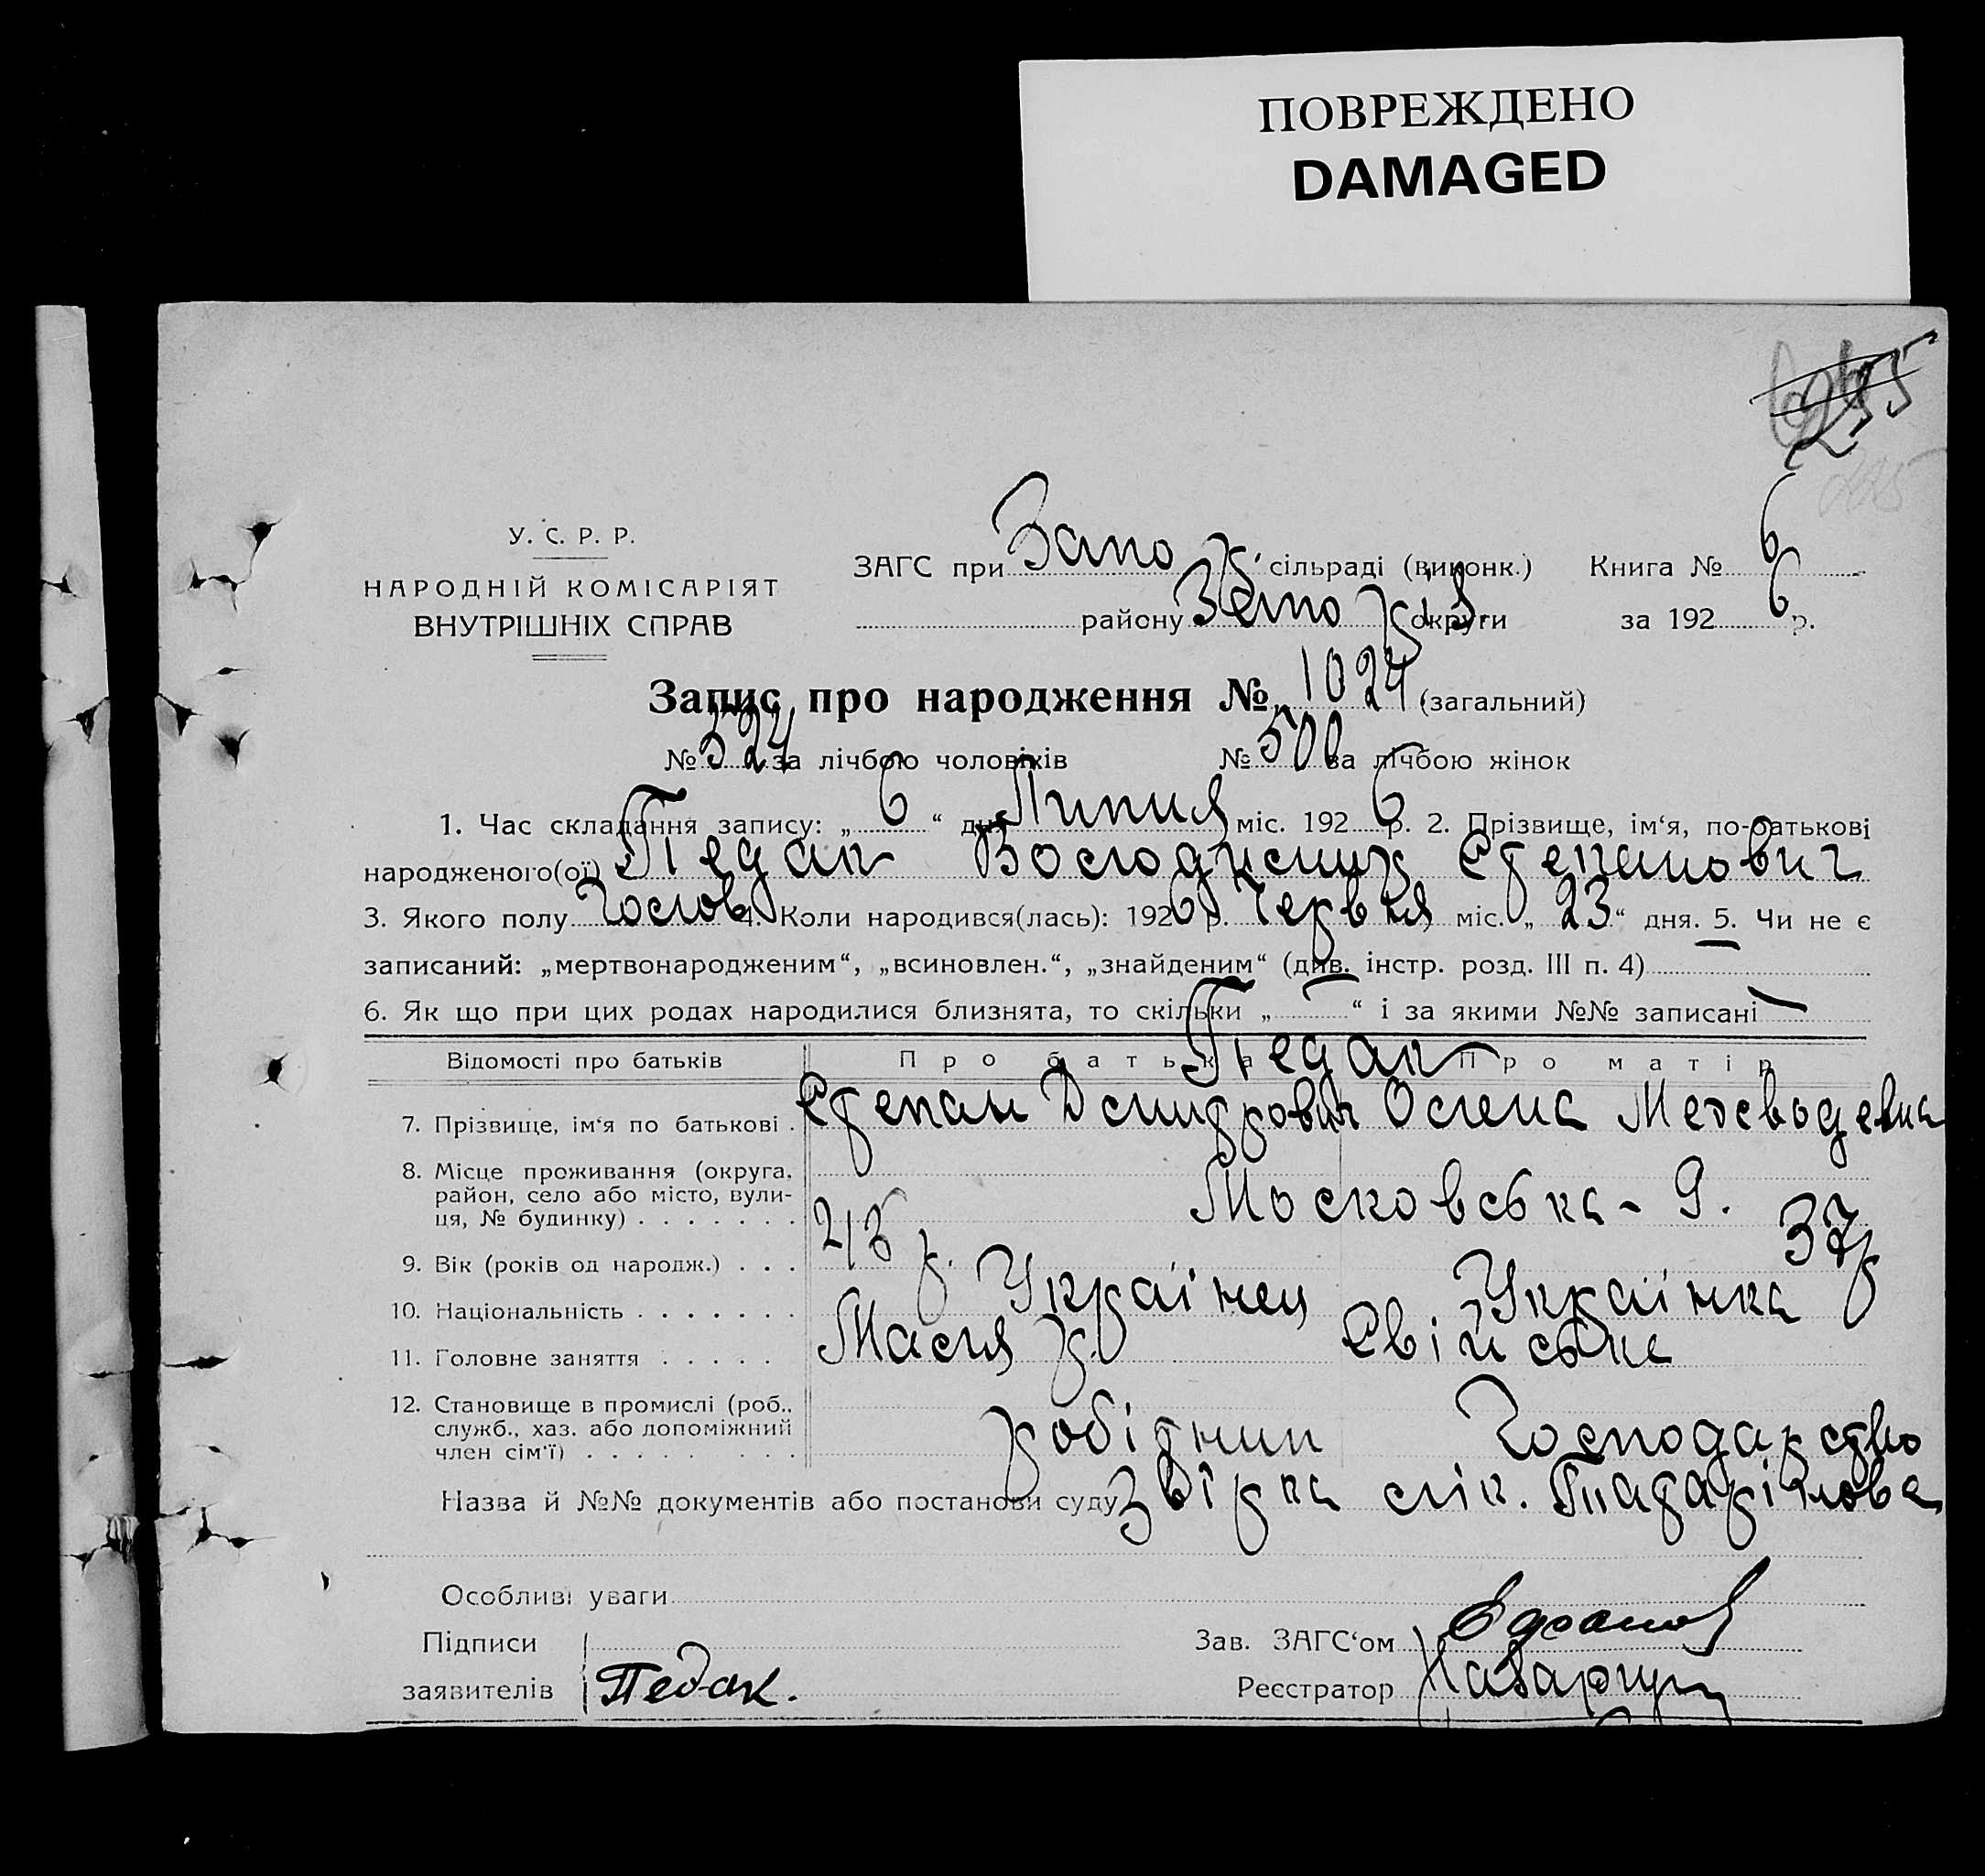 ПОВРЕЖДЕНО
DAMAGED
255
У. С. Р. Р.
НАРОДНІЙ КОМІСАРІЯТ
ВНУТРІШНІХ СПРАВ
ЗАГС при Запо сільраді (виконк.) Книга № 6
району Запо округи за 192 6 р.
Запис про народження № 1024 (загальний)
№ 524 за лічбою чоловіків № 500 за лічбою жінок
1. Час складання запису: „ 6 “ дня Липня міс. 192 6 р. 2. Прізвище, ім‘я, по-батькові
народженого(ої) Педак Володимир Степанович
3. Якого полу Чолов 4. Коли народився(лась): 1926 р. Червня міс. „ 23 “ дня. 5. Чи не є
записаний: „мертвонародженим“, „всиновлен.“, „знайденим“ (див. інстр. розд. III п. 4)
6. Як що при цих родах народилися близнята, то скільки „ — “ і за якими №№ записані —
Відомості про батьків Про батька Педак Про матір
7. Прізвище, ім‘я по батькові . Степан Дмитрович Олена
8. Місце проживання (округа,
район, село або місто, вули-
ця, № будинку) . . . . . . . Московська - 9.
9. Вік (років од народж.) . . . р. 37 р
10. Національність . . . . . . . Українец Українка
11. Головне заняття . . . . . Маляр. Свійське
12. Становище в промислі (роб.,
служб., хаз. або допоміжний
член сім‘ї) . . . . . . . . . робітник Господарство
Назва й №№ документів або постанови суду Звірка лік.
Особливі уваги
Підписи Зав. ЗАГС‘ом
заявителів Педак. Реєстратор